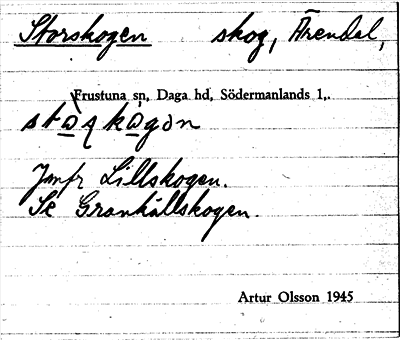 Storskogen skog, Ärendal,
Frustuna sn, Daga hd, Södermanlands l,.
Jmfr Lillskogen.
Se Granhällskogen.
Artur Olsson 1945